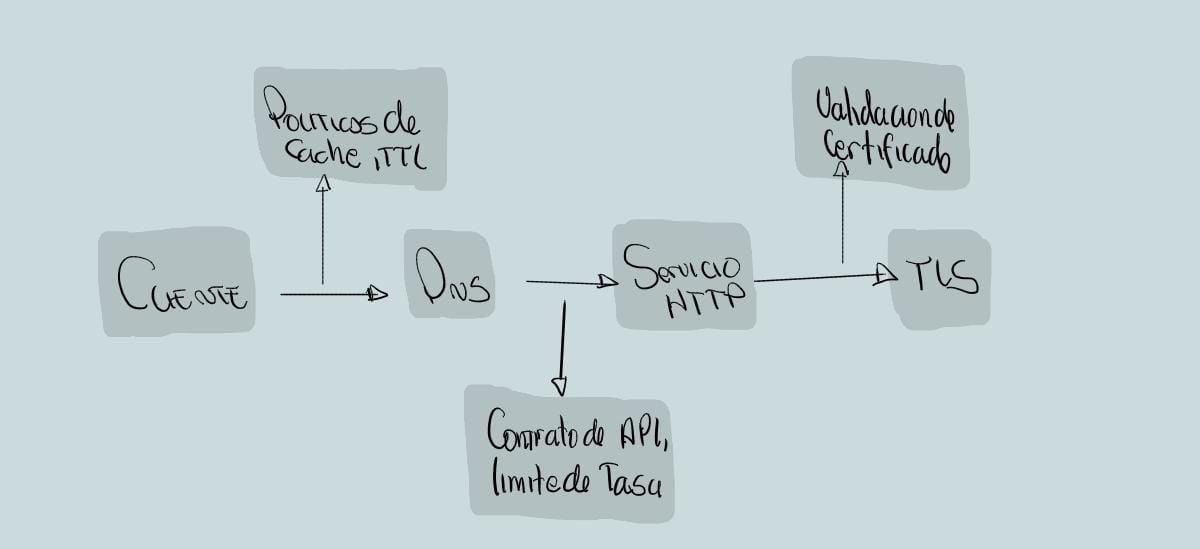 Politicas de
Cache, TTL
Validacion de
Certificado
Cliente
DNS
Servicio
HTTP
TLS
Contrato de API,
limite de Tasa